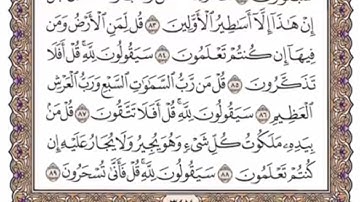 إِنْ هَٰذَا إِلَّا أَسَاطِيرُ الْأَوَّلِينَ ٨٣ قُل لِّمَنِ الْأَرْضُ وَمَن
فِيهَا إِن كُنتُمْ تَعْلَمُونَ ٨٤ سَيَقُولُونَ لِلَّهِ قُلْ أَفَلَا
تَذَكَّرُونَ ٨٥ قُلْ مَن رَّبُّ السَّمَٰوَٰتِ السَّبْعِ وَرَبُّ الْعَرْشِ
الْعَظِيمِ ٨٦ سَيَقُولُونَ لِلَّهِ قُلْ أَفَلَا تَتَّقُونَ ٨٧ قُلْ مَن
بِيَدِهِ مَلَكُوتُ كُلِّ شَيْءٍ وَهُوَ يُجِيرُ وَلَا يُجَارُ عَلَيْهِ إِن
كُنتُمْ تَعْلَمُونَ ٨٨ سَيَقُولُونَ لِلَّهِ قُلْ فَأَنَّىٰ تُسْحَرُونَ ٨٩